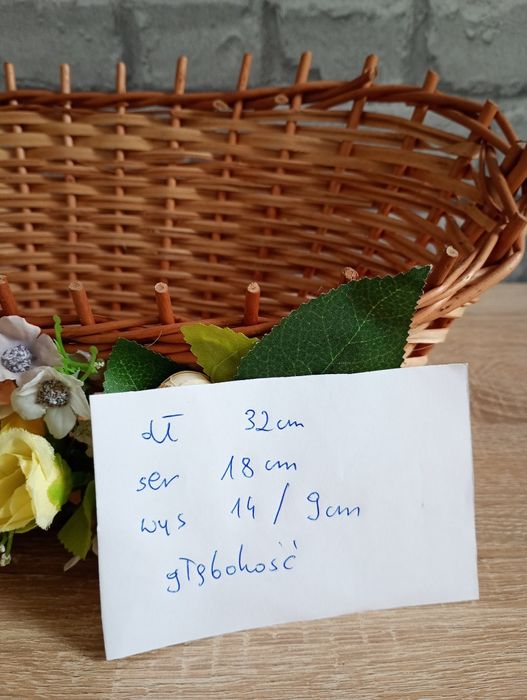 dł 32cm
szer 18cm
wys 14 / 9cm
głębokość